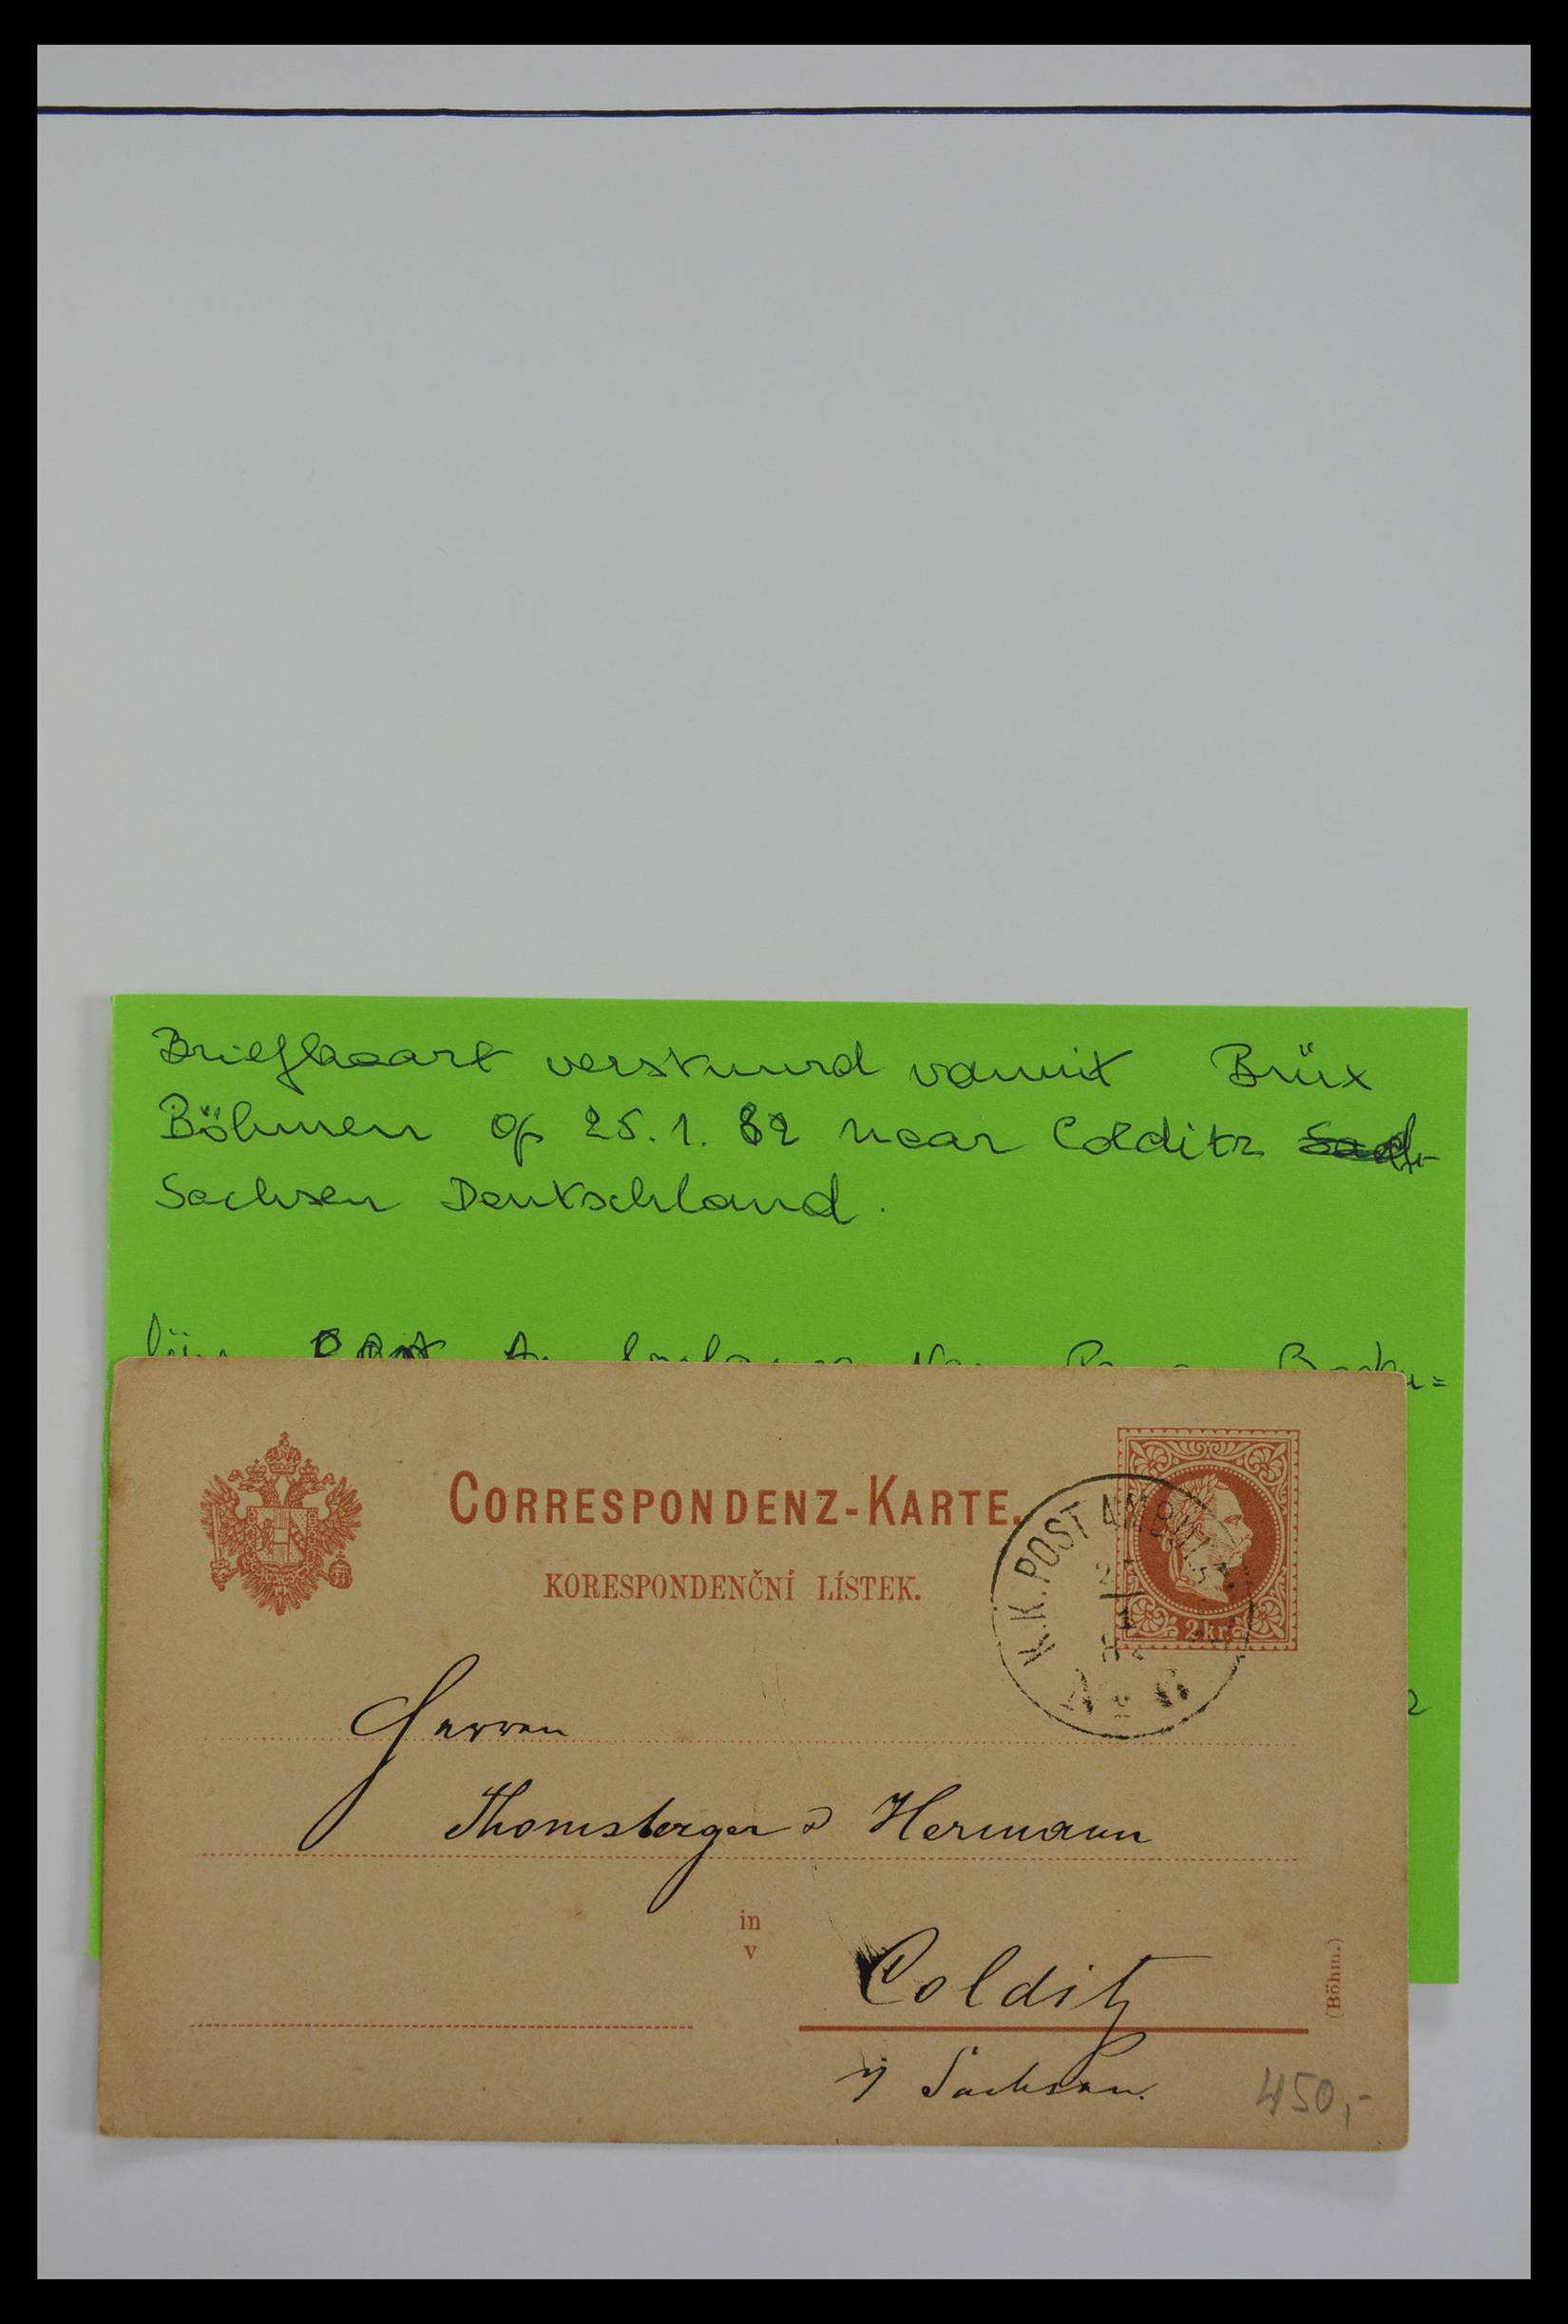 Briefkaart verstuurd vanuit Brüx
Böhmen op 25.1.82 naar Colditz
Sachsen Deutschland.
CORRESPONDENZ-KARTE.
KORESPONDENČNÍ LÍSTEK.
K.K. POST AMBUL
2 kr.
No 6
Herren
Thomsberger & Hermann
in
v
Colditz
(Böhm.)
i/ Sachsen.
450,-